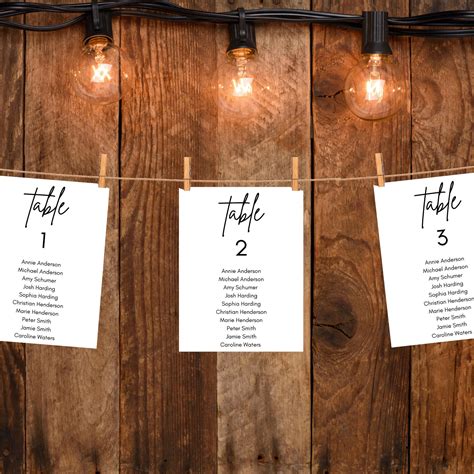 Table
1
Annie Anderson
Michael Anderson
Amy Schumer
Josh Harding
Sophia Harding
Christian Henderson
Marie Henderson
Peter Smith
Jamie Smith
Caroline Waters
Table
2
Annie Anderson
Michael Anderson
Amy Schumer
Josh Harding
Sophia Harding
Christian Henderson
Marie Henderson
Peter Smith
Jamie Smith
Caroline Waters
Table
3
Annie Anderson
Michael Anderson
Amy Schumer
Josh Harding
Sophia Harding
Christian Henderson
Marie Henderson
Peter Smith
Jamie Smith
Caroline Waters